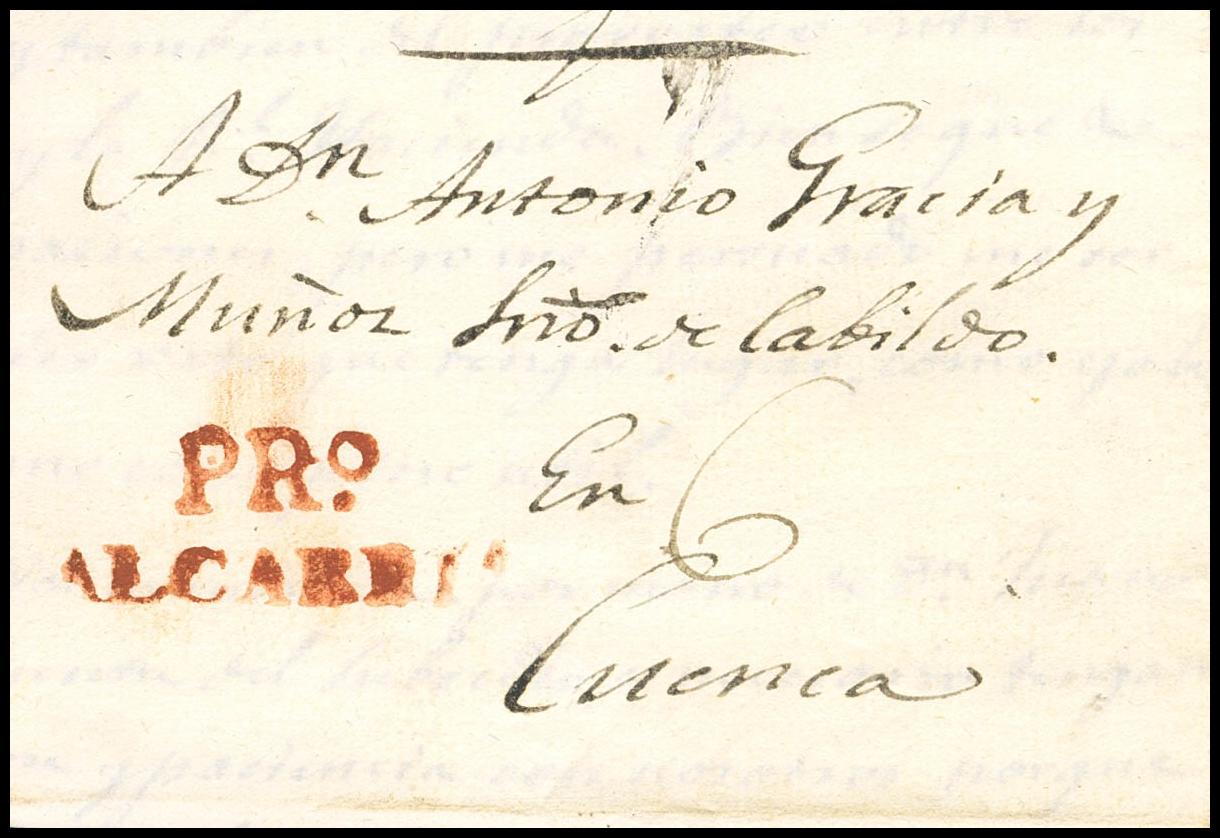 A Dn. Antonio Gracia y
Muñoz Srio. de Cabildo.
PRº
ALCARRIA
En
Cuenca